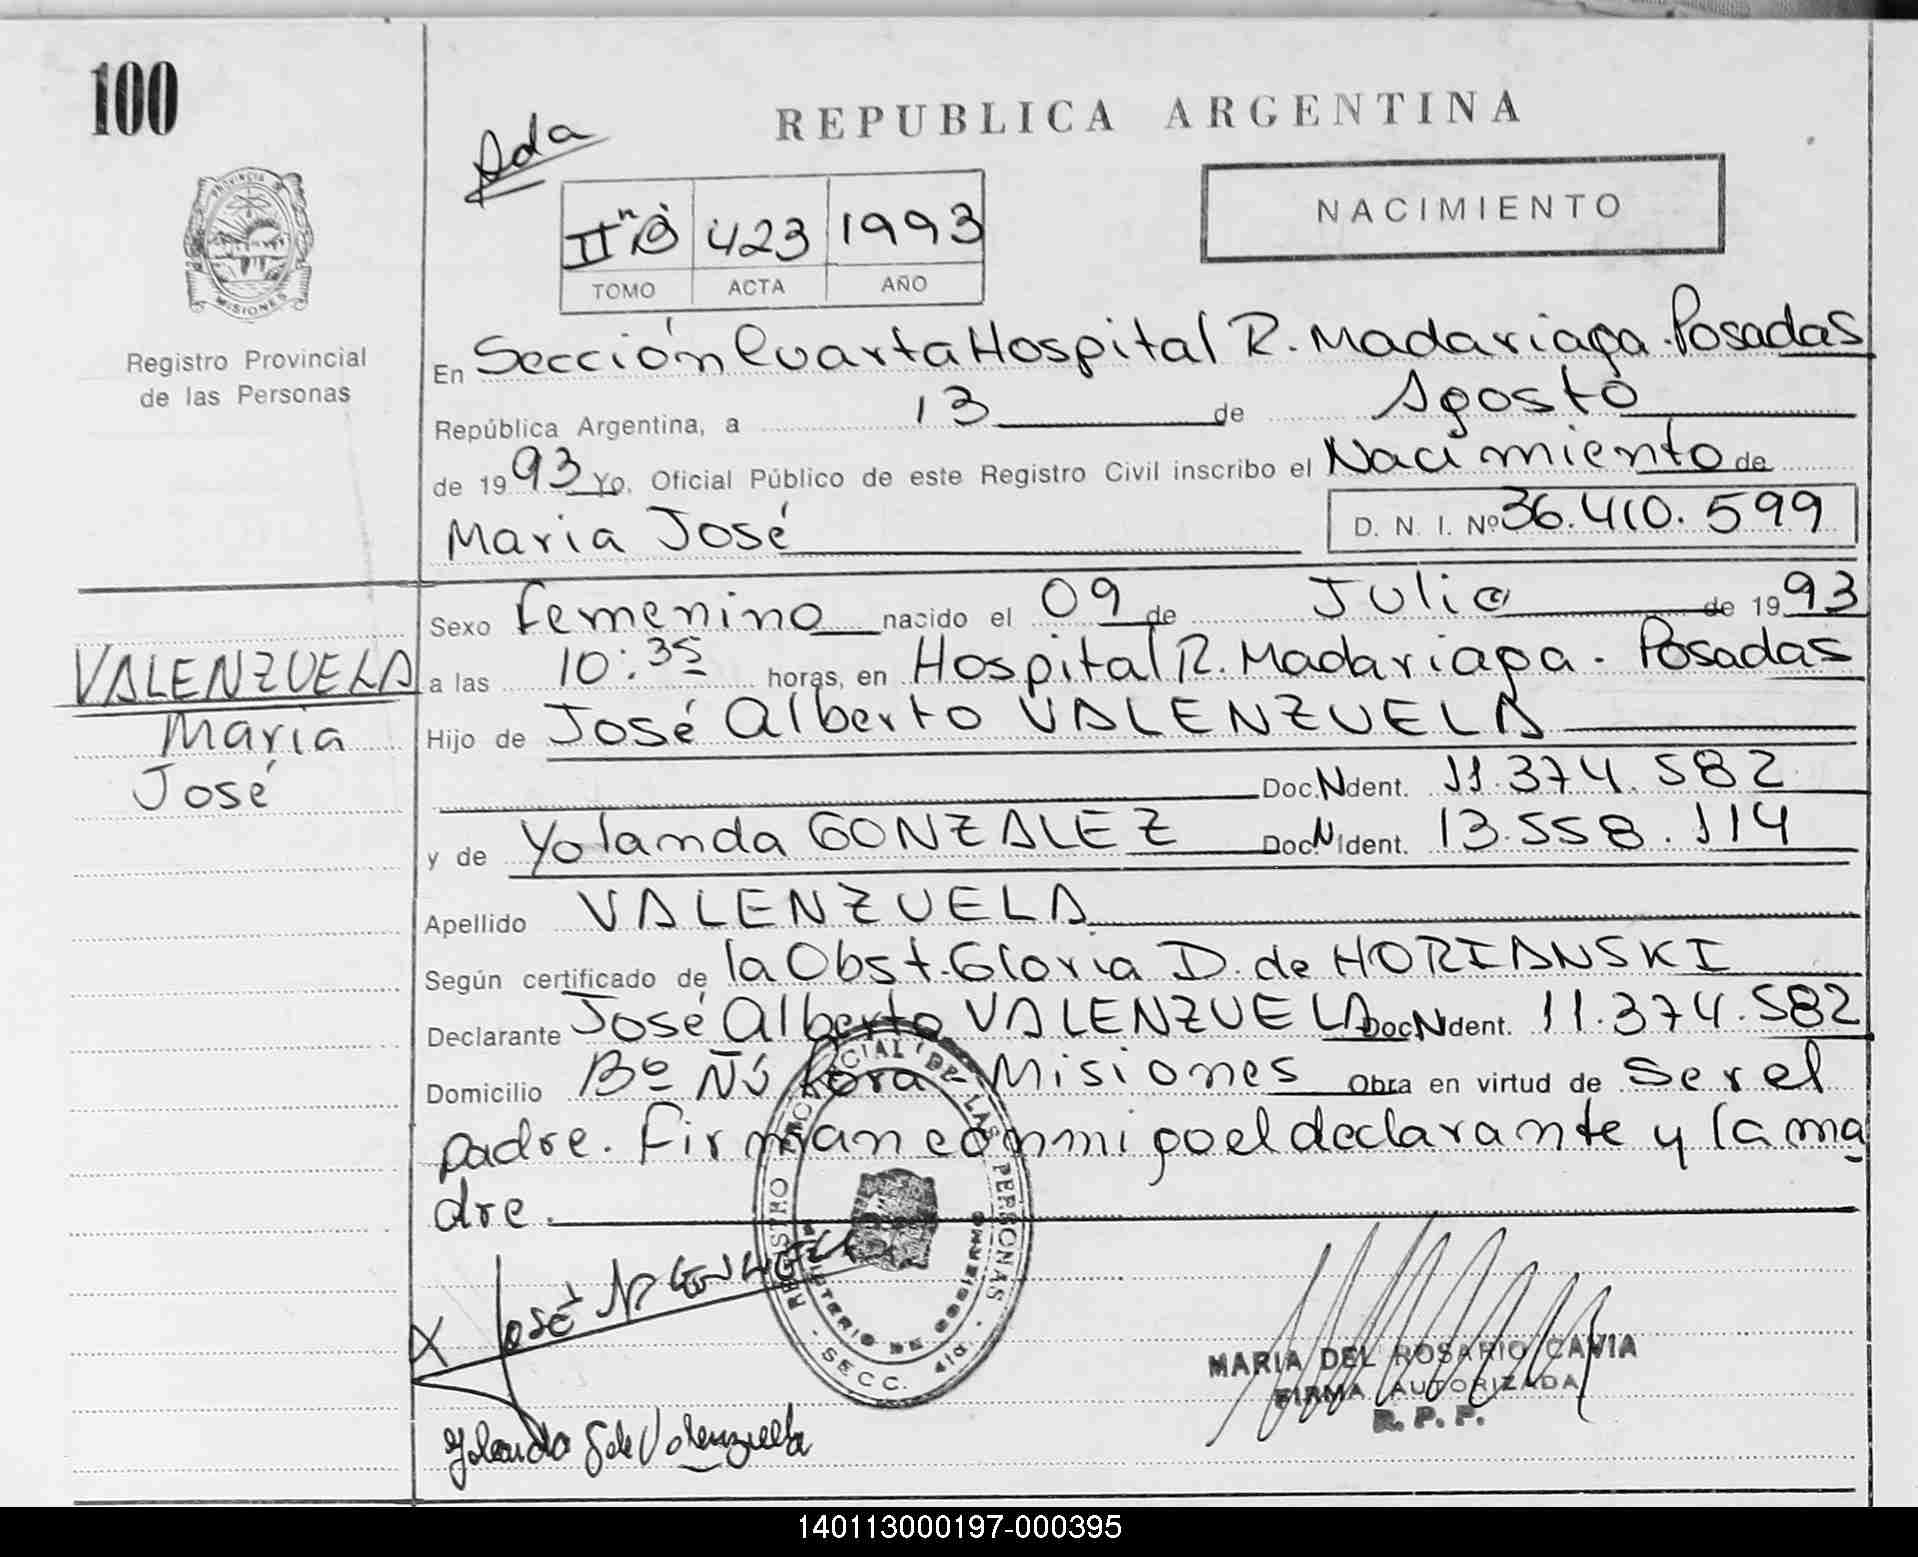 100
REPUBLICA ARGENTINA
NACIMIENTO
PROVINCIA
MISIONES
Registro Provincial
de las Personas
423 1993
TOMO ACTA AÑO
En Sección Cuarta Hospital R. Madariaga. Posadas
República Argentina, a 13 de Agosto
de 1993 Yo, Oficial Público de este Registro Civil inscribo el Nacimiento de
Maria José D. N. I. Nº 36.410.599
VALENZUELA
Maria
José
Sexo Femenino nacido el 09 de Julio de 1993
a las 10:35 horas, en Hospital R. Madariaga. Posadas
Hijo de José Alberto VALENZUELA
Doc.N Ident. 11.374.582
y de Yolanda GONZALEZ Doc.N Ident. 13.558.114
Apellido VALENZUELA
Según certificado de la Obst. Gloria D. de HORIANSKI
Declarante José Alberto VALENZUELA Doc.N Ident. 11.374.582
Domicilio Bº Ñú Porá Misiones Obra en virtud de Ser el
padre. Firman conmigo el declarante y la ma
dre.
REGISTRO PROVINCIAL DE LAS PERSONAS
MINISTERIO DE GOBIERNO
- SECC. 4ta. -
X José
Yolanda G de Valenzuela
MARIA DEL ROSARIO CAVIA
FIRMA AUTORIZADA
R. P. P.
140113000197-000395